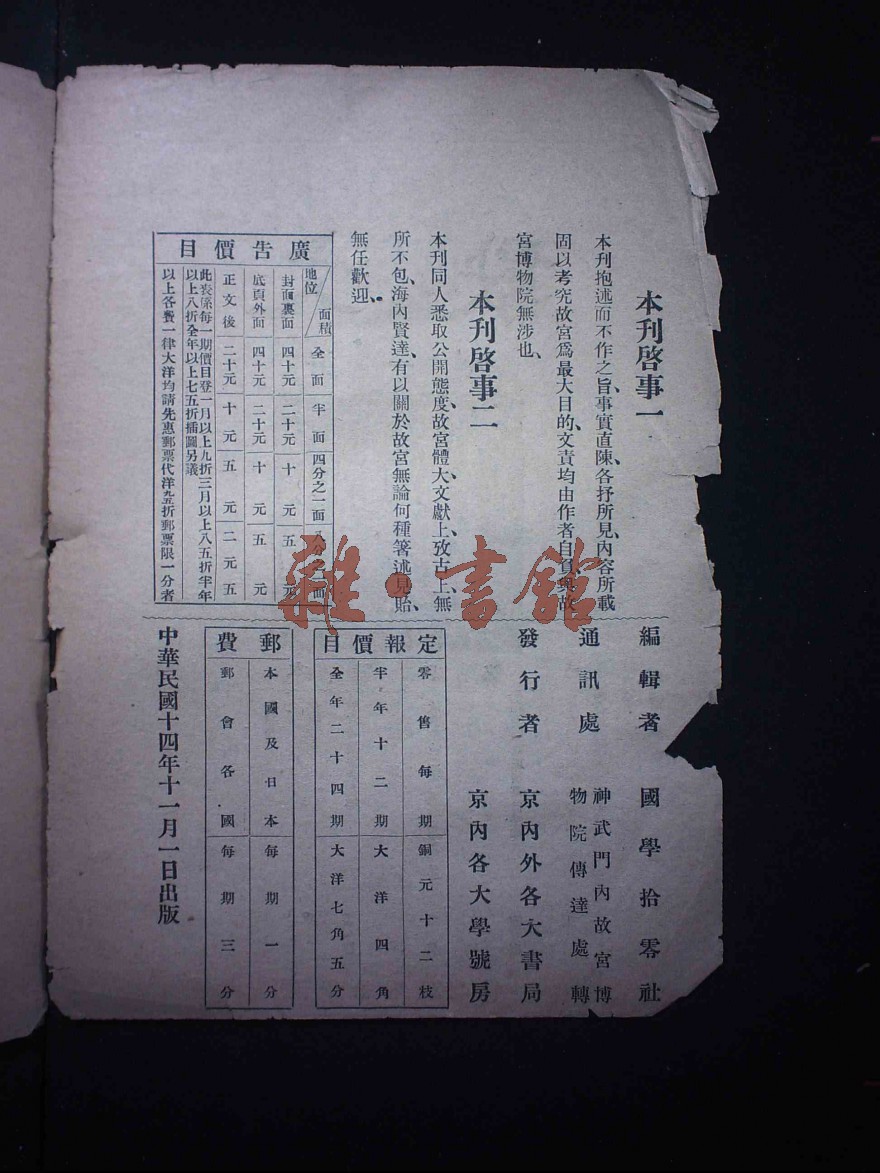 本刊啓事一
本刊抱述而不作之旨、事實直陳、各抒所見、內容所載
固以考究故宮爲最大目的、文責均由作者自負與故
宮博物院無涉也、
本刊啓事二
本刊同人悉取公開態度、故宮體大、文獻上攷古上、無
所不包、海內賢達、有以關於故宮無論何種箸述見貽、
無任歡迎、
廣告價目
地位 面積 全面 半面 四分之一面 八分之一面
封面裏面 四十元 二十元 十元 五元
底頁外面 四十元 二十元 十元 五元
正文後 二十元 十元 五元 二元五
此表係每一期價目登一月以上九折三月以上八五折半年
以上八折全年以上七五折插圖另議
以上各費一律大洋均請先惠郵票代洋九五折郵票限一分者
編輯者 國學拾零社
通訊處 神武門內故宮博
物院傳達處轉
發行者 京內外各大書局
京內各大學號房
定報價目
零售每期 銅元十二枝
半年十二期 大洋四角
全年二十四期 大洋七角五分
郵費
本國及日本 每期一分
郵會各國 每期三分
中華民國十四年十一月一日出版
雜·書館